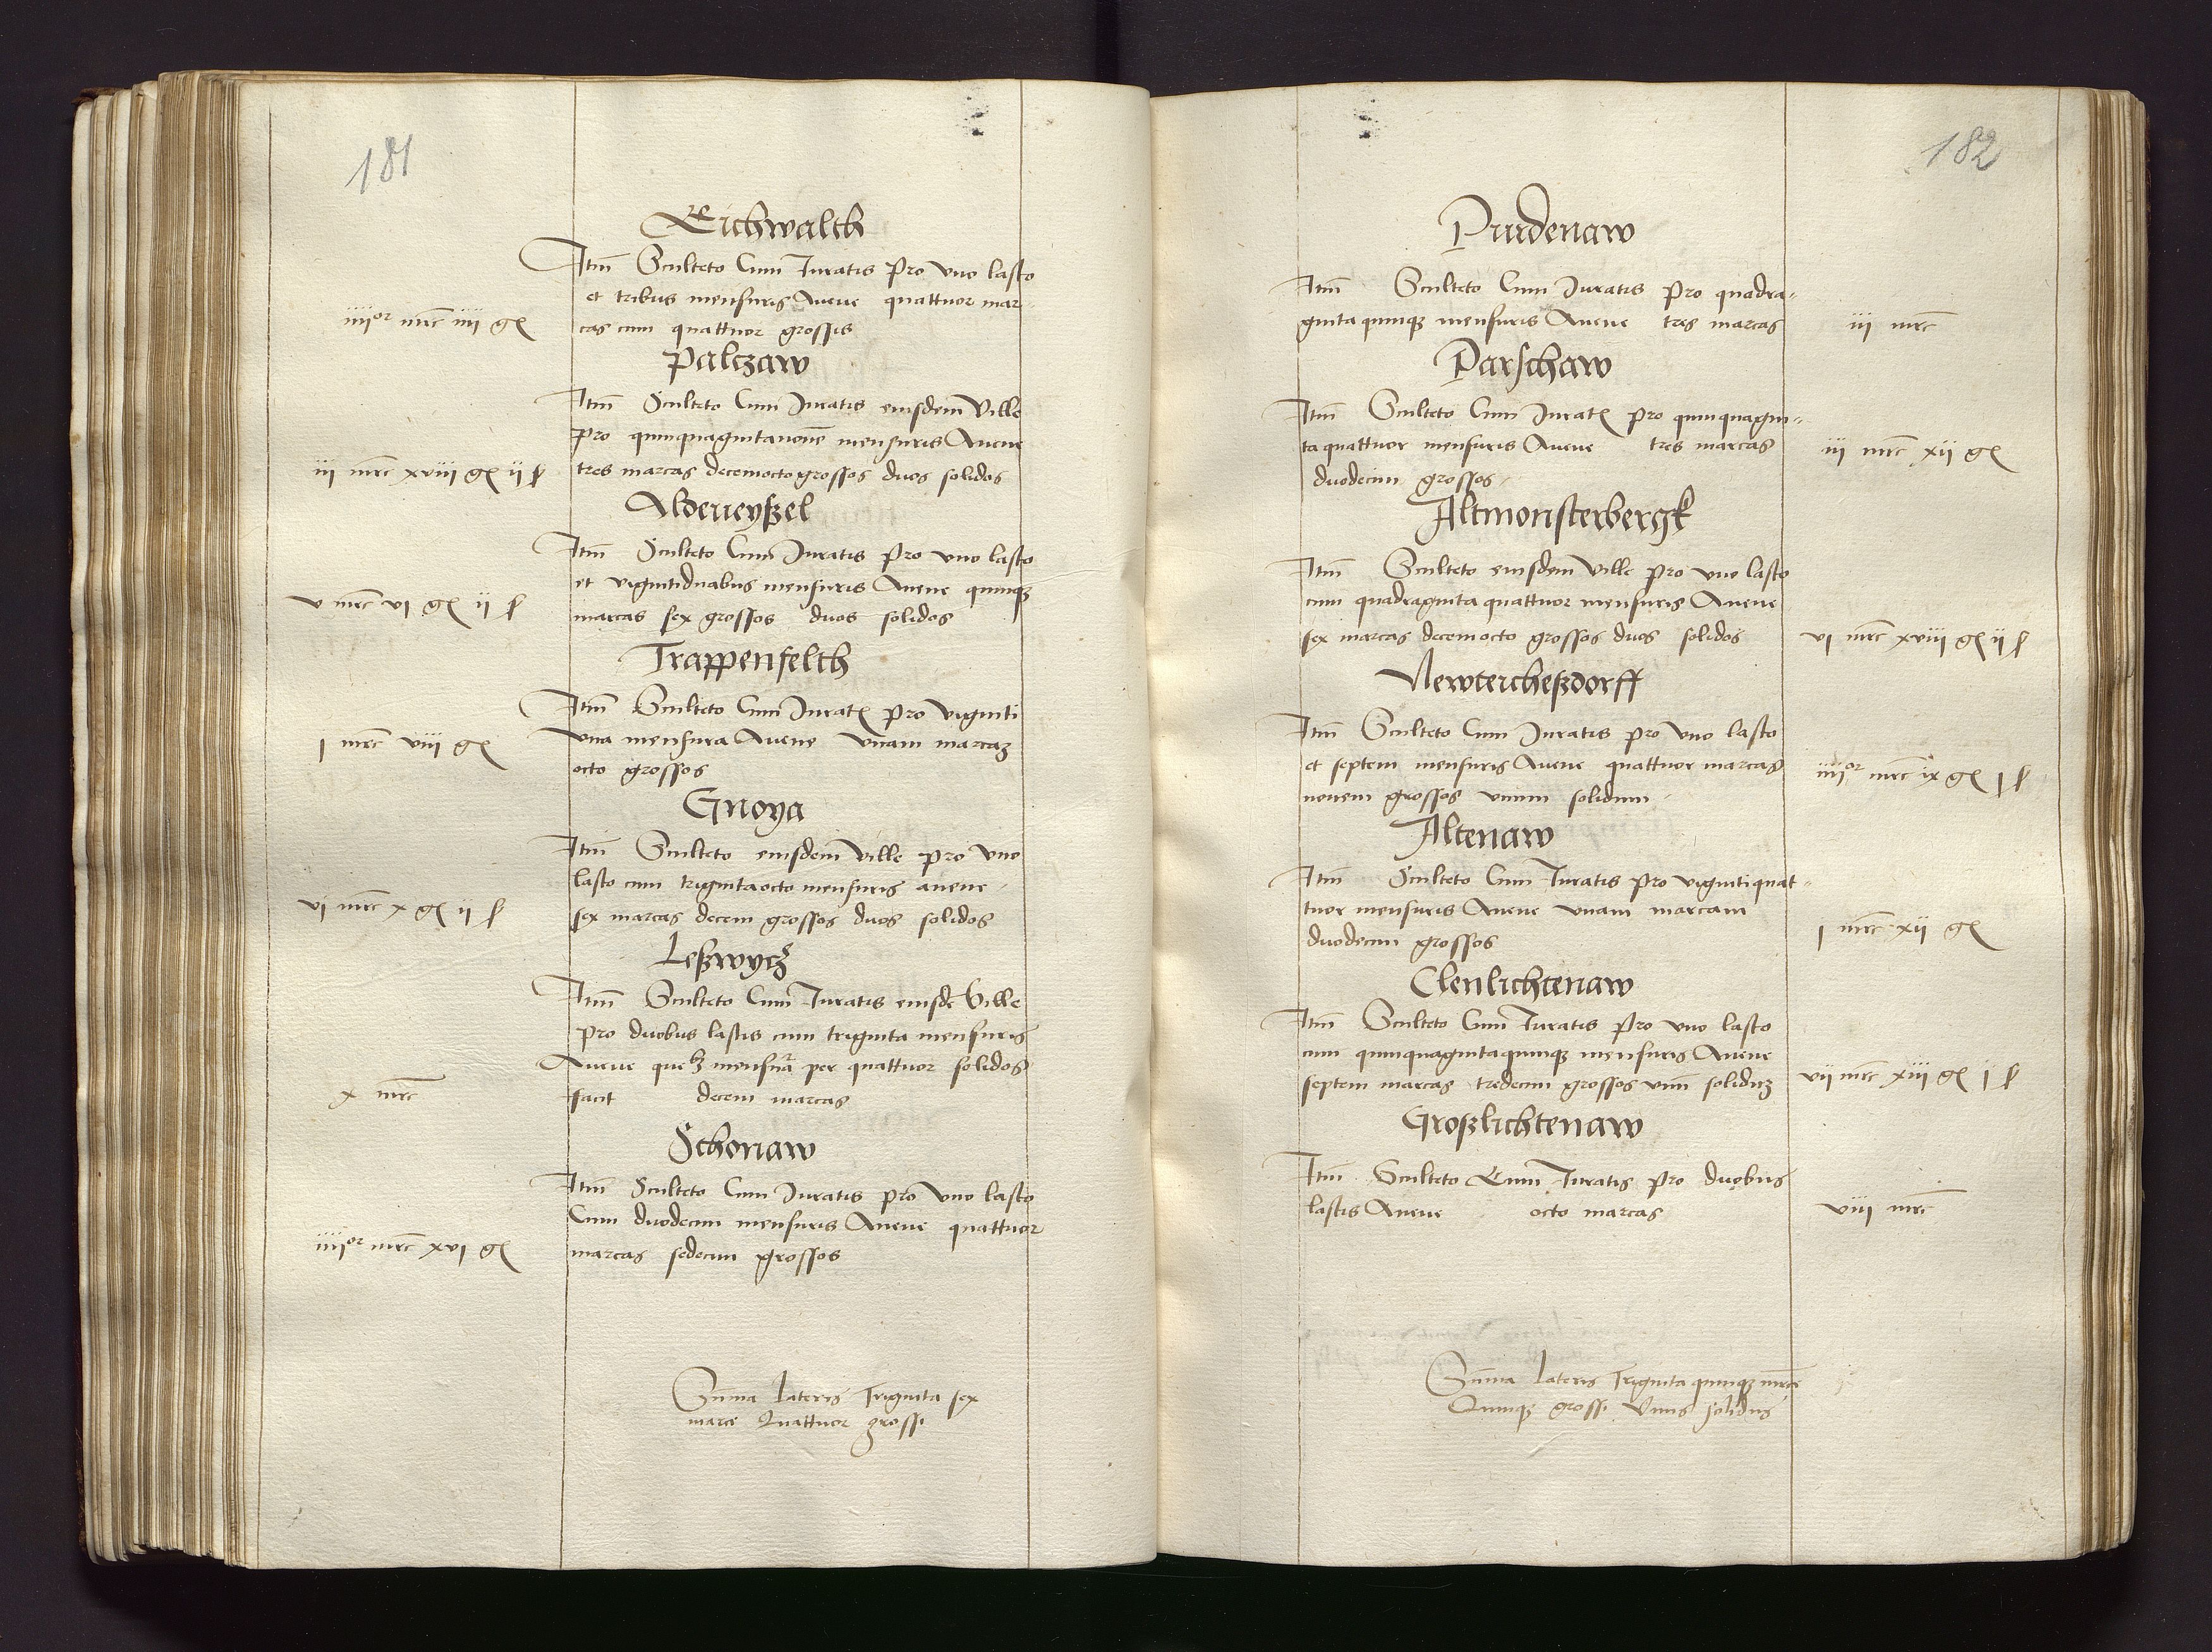 181
Eichwalth
Itm Sculteto Cum Iuratis pro vno lasto
et tribus mensuris Auene quattuor mar-
iiiior mrc iiii g cas cum quattuor grossis
Palczaw
Itm Sculteto Cum Iuratis eiusdem Ville
pro quinquagintanoue mensuris Auene
iii mrc xviii g ii ß tres marcas decemocto grossos duos solidos
Aldeneyßel
Itm Sculteto Cum Iuratis pro vno lasto
et vigintiduabus mensuris Auene quinqz
v mrc vi g ii ß marcas sex grossos duos solidos
Trappenfelth
Itm Sculteto Cum Iurat pro viginti
i mrc viii g Vna mensura Auene Vnam marcaz
octo grossos
Gnoya
Itm Sculteto eiusdem Ville pro vno
lasto cum trigintaocto mensuris auene
vi mrc x g ii ß sex marcas decem grossos duos solidos
Leßwycz
Itm Sculteto Cum Iuratis eiusde Ville
pro duobus lastis cum triginta mensuris
Auene quelz mensura per quattuor solidos
x mrc facit decem marcas
Schonaw
Itm Sculteto Cum Iuratis pro Vno lasto
Cum duodecim mensuris Auene quattuor
iiiior mrc xvi g marcas sedecim grossos
Suma Lateris Triginta sex
marce Quattuor grossi
182
Prudenaw
Itm Sculteto Cum Iuratis pro quadra-
ginta quinqz mensuris Auene tres marcas iii mrc
Parschaw
Itm Sculteto Cum Iurat pro quinquagin-
ta quattuor mensuris Auene tres marcas iii mrc xii g
duodecim grossos
Altmonsterbergk
Itm Sculteto eiusdem Ville pro vno lasto
cum quadraginta quattuor mensuris Auene
sex marcas decemocto grossos duos solidos vi mrc xviii g ii ß
Newteicheßdorff
Itm Sculteto Cum Iuratis pro Vno lasto
et septem mensuris Auene quattuor marcas iiiior mrc ix g i ß
nouem grossos vnum solidum
Altenaw
Itm Sculteto Cum Iuratis pro vigintiquat-
tuor mensuris Auene vnam marcam i mrc xii g
duodecim grossos
Clenlichtenaw
Itm Sculteto Cum Iuratis pro vno lasto
cum quinquagintaquinqz mensuris Auene
septem marcas tredecim grossos vnu soliduz vii mrc xiii g i ß
Großlichtenaw
Itm Sculteto Cum Iuratis pro duobus
lastis Auene octo marcas viii mrc
Suma Lateris Triginta quinqz mrce
Quinqz grossi Vnus solidus